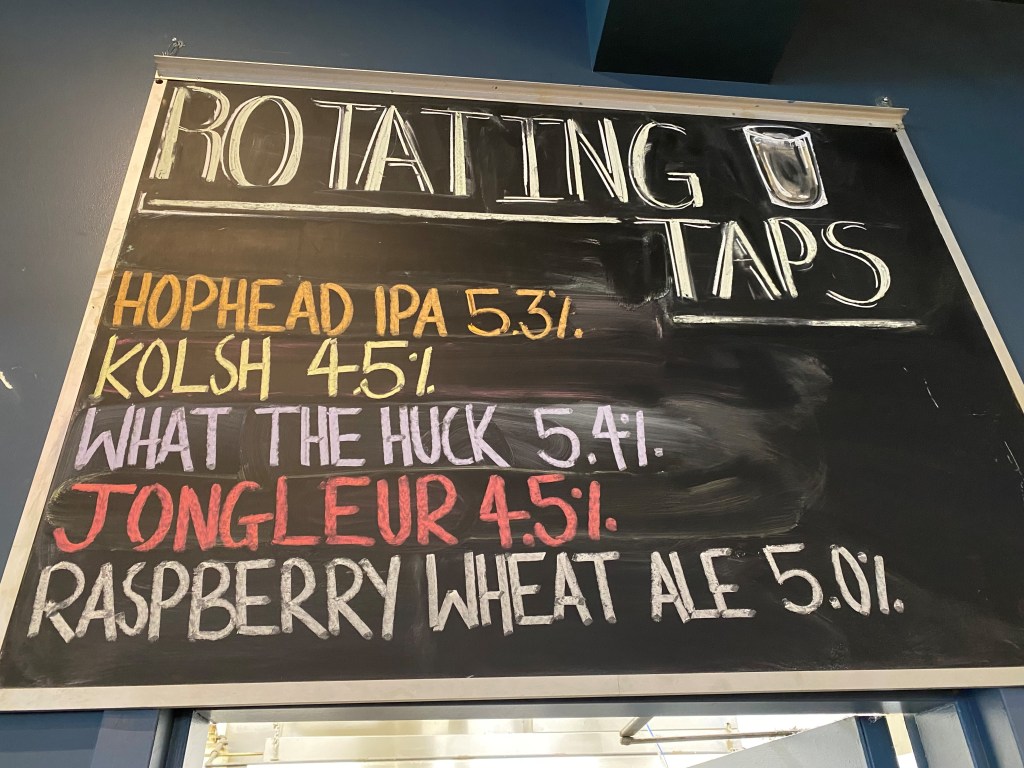 ROTATING
TAPS
HOPHEAD IPA 5.3%
KOLSH 4.5%
WHAT THE HUCK 5.4%
JONGLEUR 4.5%
RASPBERRY WHEAT ALE 5.0%